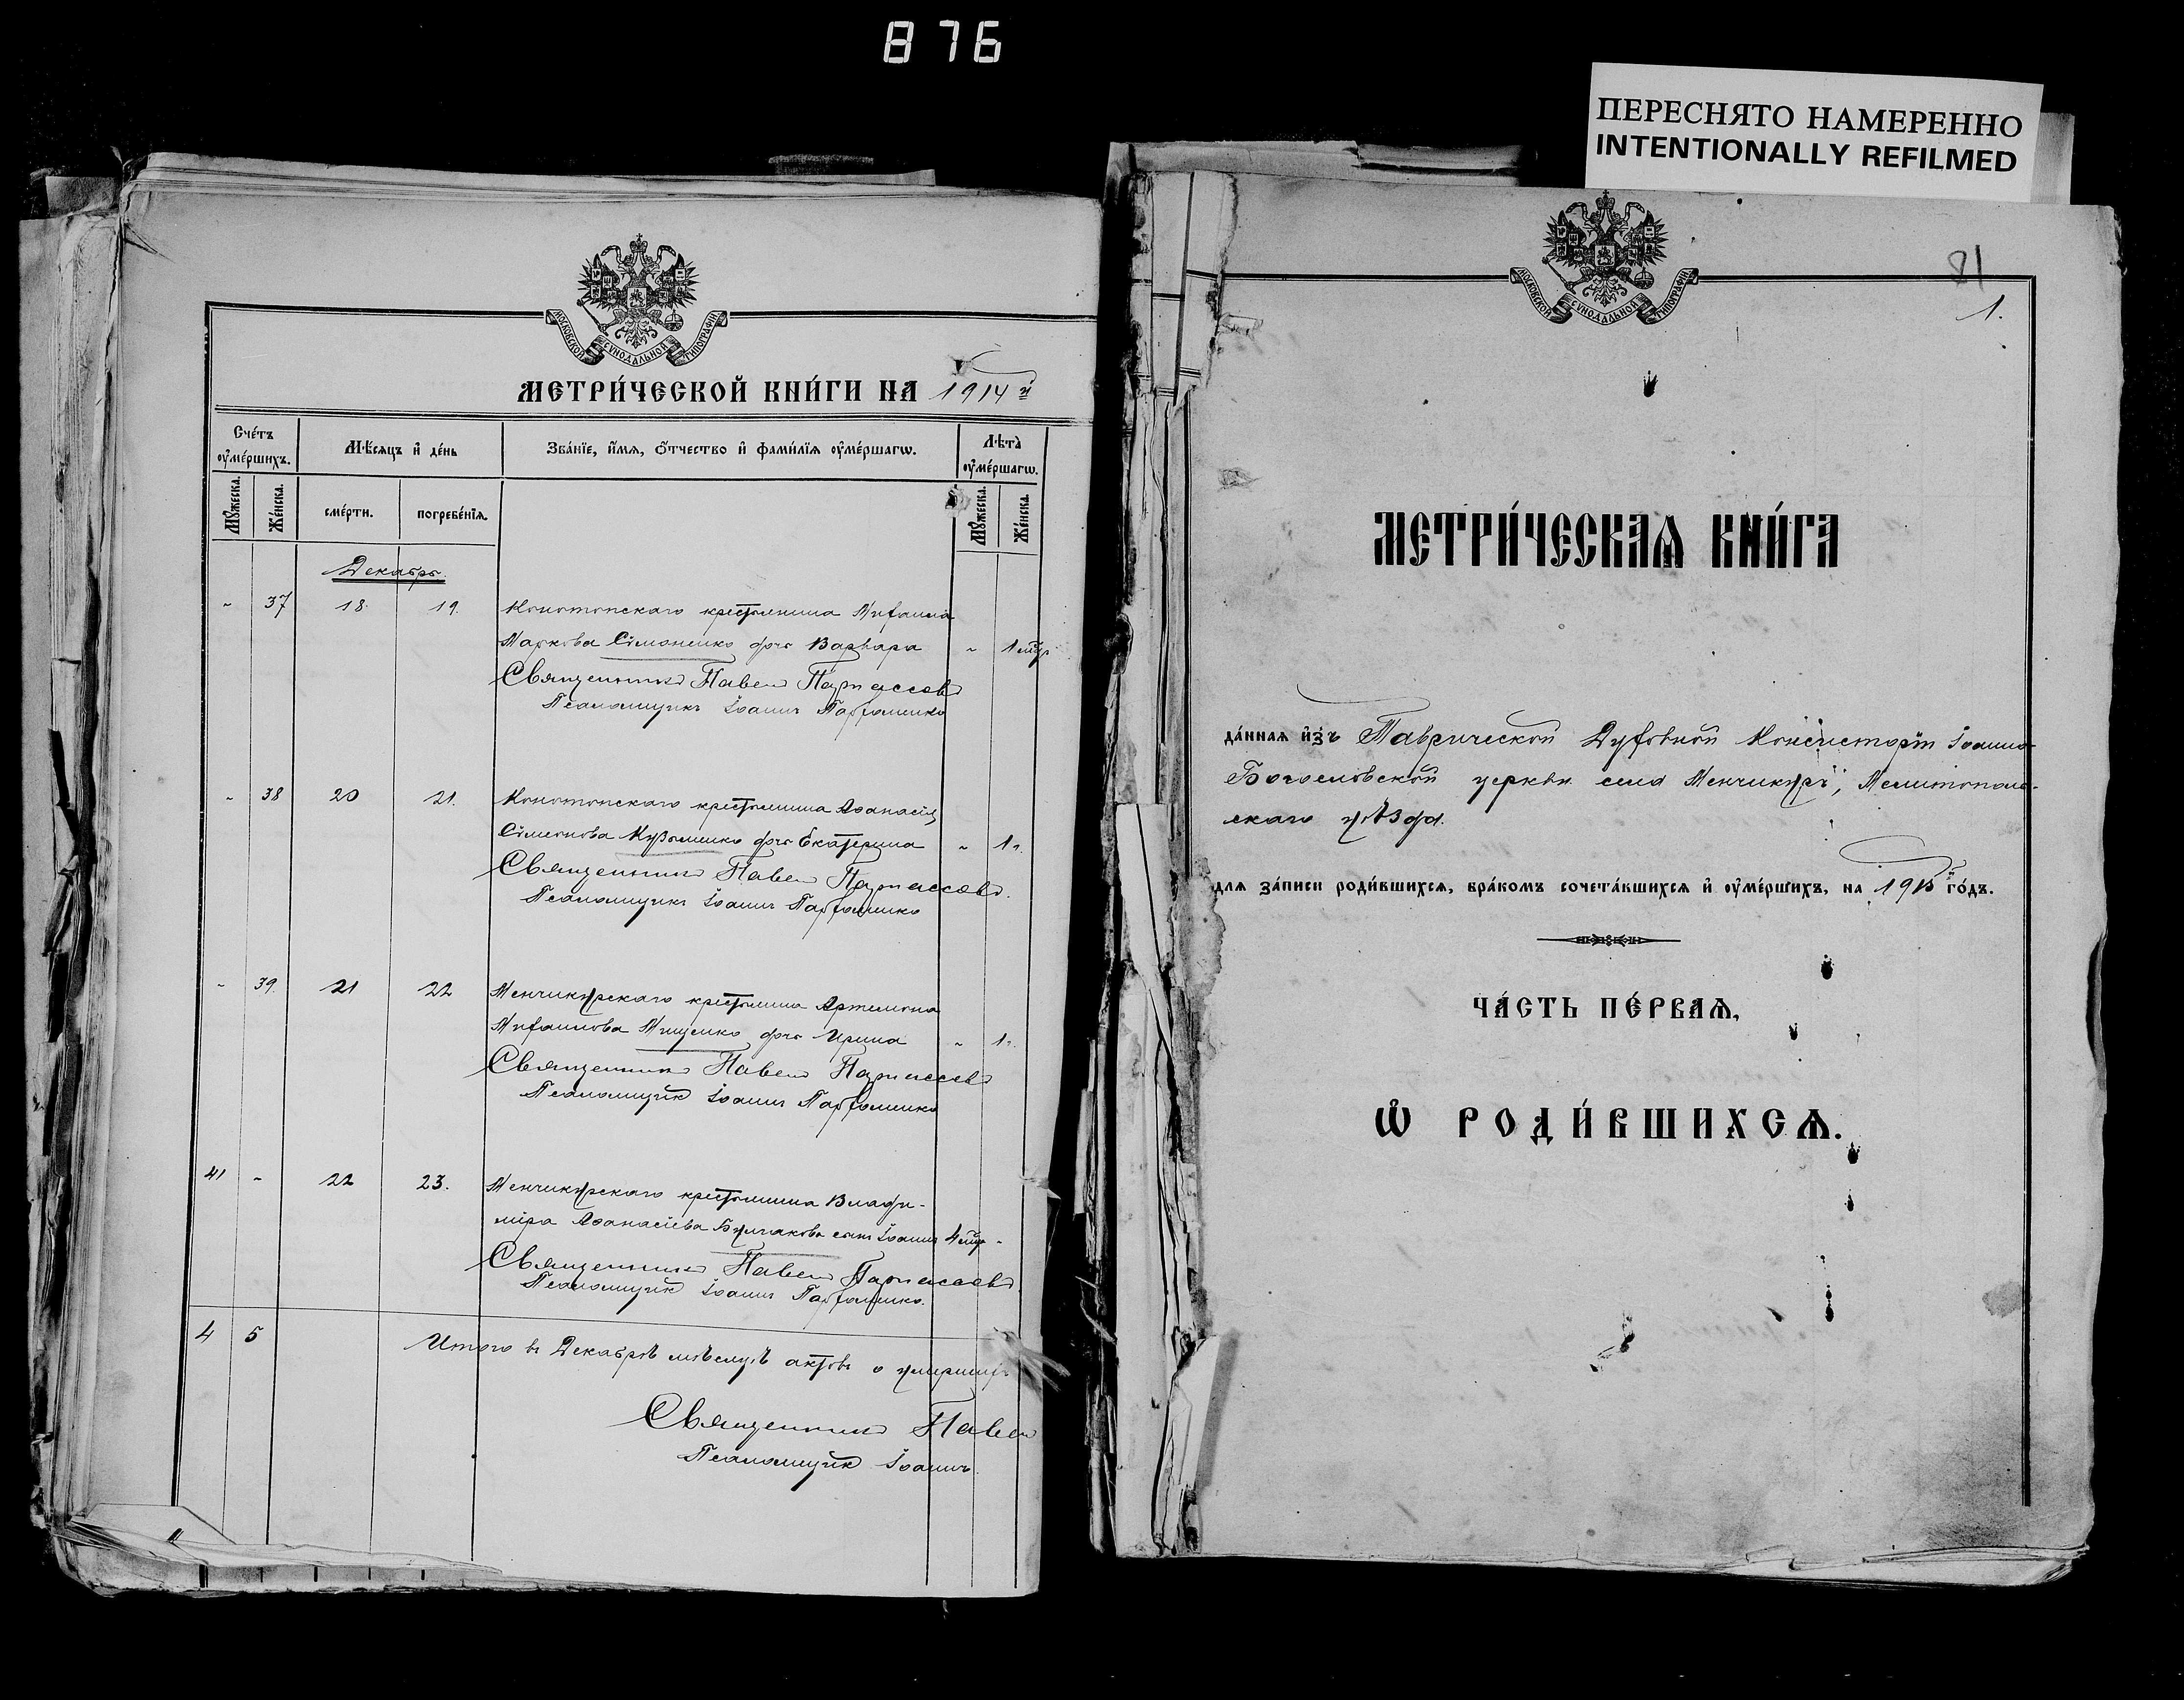 876
ПЕРЕСНЯТО НАМЕРЕННО
INTENTIONALLY REFILMED
МОСКОВСКОЙ СѴНОДАЛЬНОЙ ТИПОГРАФІИ
МЕТРИ́ЧЕСКОЙ КНИ́ГИ НА 1914 й
Сче́тъ ᲂу҆ме́ршихъ.
Мѣ́сяцъ и҆ де́нь
Зва́нїе, и҆́мѧ, ѻ҆́тчество и҆ фами́лїѧ ᲂу҆ме́ршагѡ.
Лѣ́та ᲂу҆ме́ршагѡ.
Мꙋ́жеска.
Же́нска.
сме́рти.
погребе́нїѧ.
Мꙋ́жеска.
Же́нска.
Декабрь.
" 37 18. 19. Конотопскаго крестьянина Михаила
Маркова Симоненко дочь Варвара " 1 мѣс.
Священникъ Павелъ Парнассовъ
Псаломщикъ Іоаннъ Пархоменко
" 38 20 21. Конотопскаго крестьянина Аѳанасія
Симеонова Кузьменко дочь Екатерина " 1 г.
Священникъ Павелъ Парнассовъ.
Псаломщикъ Іоаннъ Пархоменко
" 39. 21 22 Менчикурскаго крестьянина Артемона
Михаилова Мищенко дочь Ирина " 1 г.
Священникъ Павелъ Парнассовъ
Псаломщикъ Іоаннъ Пархоменко
41 " 22 23. Менчикурскаго крестьянина Влади-
міра Аѳанасіева Булгакова сынъ Іоаннъ 4 мѣс. "
Священникъ Павелъ Парнассовъ.
Псаломщикъ Іоаннъ Пархоменко.
4 5 Итого въ Декабрѣ мѣсяцѣ актовъ о умершихъ
Священникъ Павелъ
Псаломщикъ Іоаннъ
МОСКОВСКОЙ СѴНОДАЛЬНОЙ ТИПОГРАФІИ
81
1.
МЕТРИ́ЧЕСКАѦ КНИ́ГА
да́ннаѧ и҆з̾ Таврической Духовной Консисторіи Іоанно-
Богословской церкви села Менчикуръ, Мелитополь-
скаго уѣзда.
для за́писи роди́вшихсѧ, бра́комъ сочета́вшихсѧ и҆ ᲂу҆ме́ршихъ, на 1915 й го́дъ.
ЧА́СТЬ ПЕ́РВАѦ,
Ѡ҆ РОДИ́ВШИХСѦ.